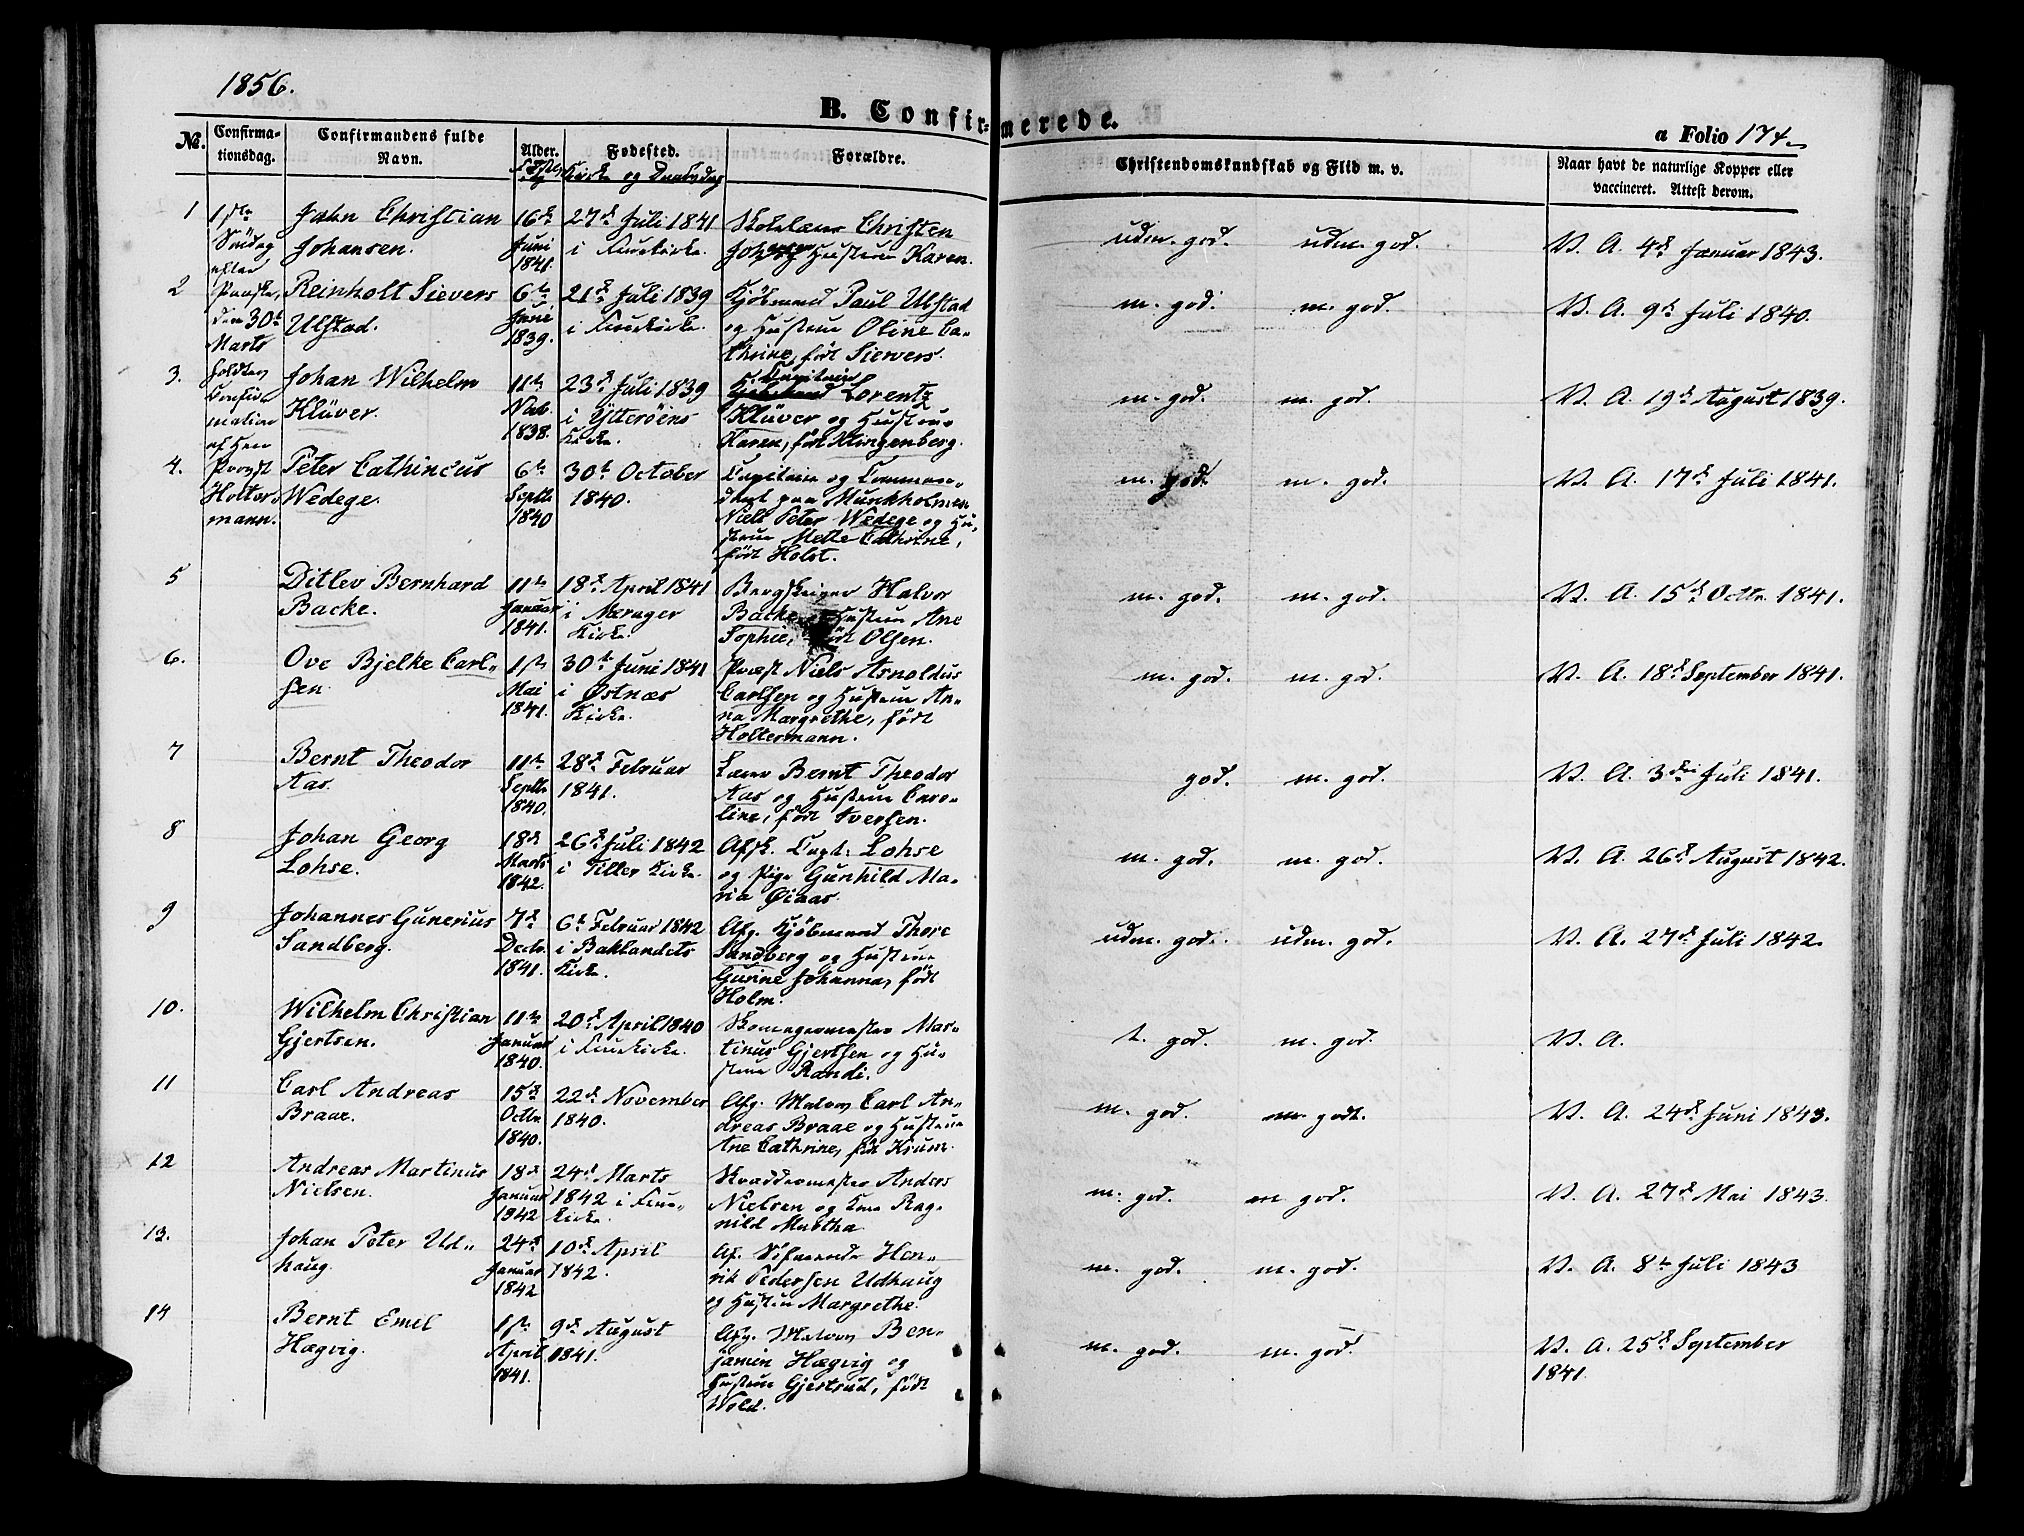 1856.
B. Confirmerede.
a Folio 174.
No.
Confirmationsdag.
Confirmandens fulde Navn.
Alder.
Fødested.
Kirke og Daabsdag
Forældre.
Christendomskundskab og Flid m. v.
Naar havt de naturlige Kopper eller vaccineret. Attest derom.
1ste Søndag efter Paaske, den 30te Marts holdtes Confirmation af Herr Provst Holtermann.
1
John Christian
Johansen.
16de
Juni
1841.
27de Juli 1841
i Fruekirke.
Christen
Hustru Karen.
udm. god. udm. god.
V. A. 4de Januar 1843.
2
Reinholt Sievers
Ulstad.
6te
1839.
21de Juli 1839
i Fruekirke.
Kjøbmand Paul Ulstad
og Hustru Oline Ca-
thrine, født Sievers.
m. god. m. god.
V. A. 9de Juli 1840.
3.
Johan Wilhelm
Klüver.
11te
Nov.
1838.
23de Juli 1839
i Ytterøens
Kirke.
Capitain
Lorentz
Klüver og Hustru
Karen, født Klingenberg.
m. god. m. god.
V. A. 19de August 1839.
4.
Peter Cathincus
Wedege.
6te
Septb.
1840
30te October
1840.
Capitain og Comman-
dant paa Munkholmen
Niels Peter Wedege og Hu-
stru Mette Cathrine,
født Holst.
m. god. m. god.
V. A. 17de Juli 1841.
5
Ditlev Bernhard
Backe.
11te
Januar
1841.
18de April 1841
i
Kirke.
Bergskriver Halvor
Backe og Hustru Ane
Sophie, født Olsen.
m. god. m. god.
V. A. 15de Octbr. 1841.
6.
Ove Bjelke Carl-
sen.
1ste
Mai
1841.
30te Juni 1841
i Østnæs
Kirke.
Præst Niels Arnoldus
Carlsen og Hustru An-
na Margrethe, født
Holtermann.
m. god. m. god.
V. A. 18de September 1841.
7
Bernt Theodor
Aas.
11te
Septb.
1840.
28de Februar
1841.
Bernt Theodor
Aas og Hustru Caro-
line, født Iversen.
god. m. god.
V. A. 3die Juli 1841.
8
Johan Georg
Lohse.
18de
Marts
1842.
26de Juli 1842
i Tiller Kirke.
Afsk. Capt. Lohse
og Pige Gunhild Ma-
ria Øiaas.
m. god. m. god.
V. A. 26de August 1842.
9
Johannes Gunerius
Sandberg.
7de
Decbr.
1841.
6te Februar 1842
i Baklandets
Kirke.
Afg. Kjøbmand Thore
Sandberg og Hustru
Gurine Johanna, født
Holm.
udm. god. udm. god.
V. A. 27de Juli 1842.
10.
Wilhelm Christian
Gjertsen.
11te
Januar
1840.
20de April 1840
i Fruekirke.
Skomagermester Mar-
tinus Gjertsen og Hu-
stru Randi.
t. god. m. god.
V. A.
11
Carl Andreas
Braae.
15de
Octbr.
1840.
22de November
1840.
Afg. Matros Carl An-
dreas Braae og Hustru
Ane Cathrine, født
m. god. m. godt.
V. A. 24de Juni 1843.
12
Andreas Martinus
Nielsen.
18de
Januar
1842
24de Marts
1842 i Frue-
kirke.
Skræddermester Anders
Nielsen og Kone Rag-
nild Martha
m. god. m god.
V. A. 27de Mai 1843.
13.
Johan Peter Ud-
haug.
24de
Januar
1842
10de April
1842.
Hen-
rik Pedersen Udhaug
og Hustru Margrethe.
m. god. m. god.
V. A. 8de Juli 1843
14
Bernt Emel
Hægvig.
1ste
April
1841.
9de August
1841.
Afg. Matros Ben-
jamin Hægvig og
Hustru Gjertrud, født
Wold.
m. god. m. god.
V. A. 25de September
1841.